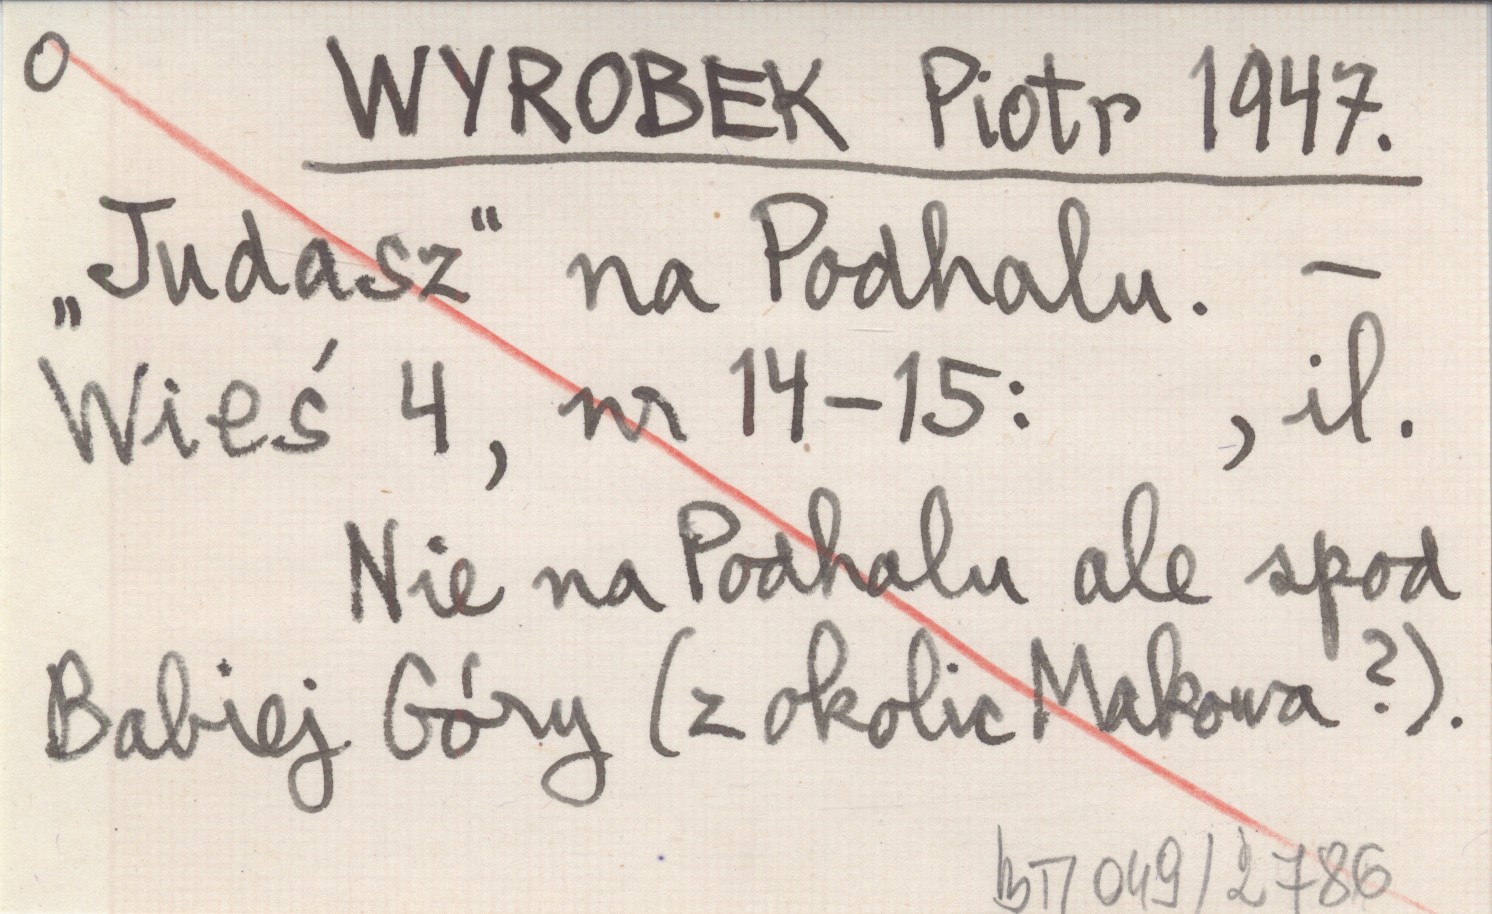 O WYROBEK Piotr 1947.
„Judasz“ na Podhalu. —
Wieś 4, nr 14–15: , il.
Nie na Podhalu ale spod
Babiej Góry (z okolic Makowa?).
BTI 049/2786